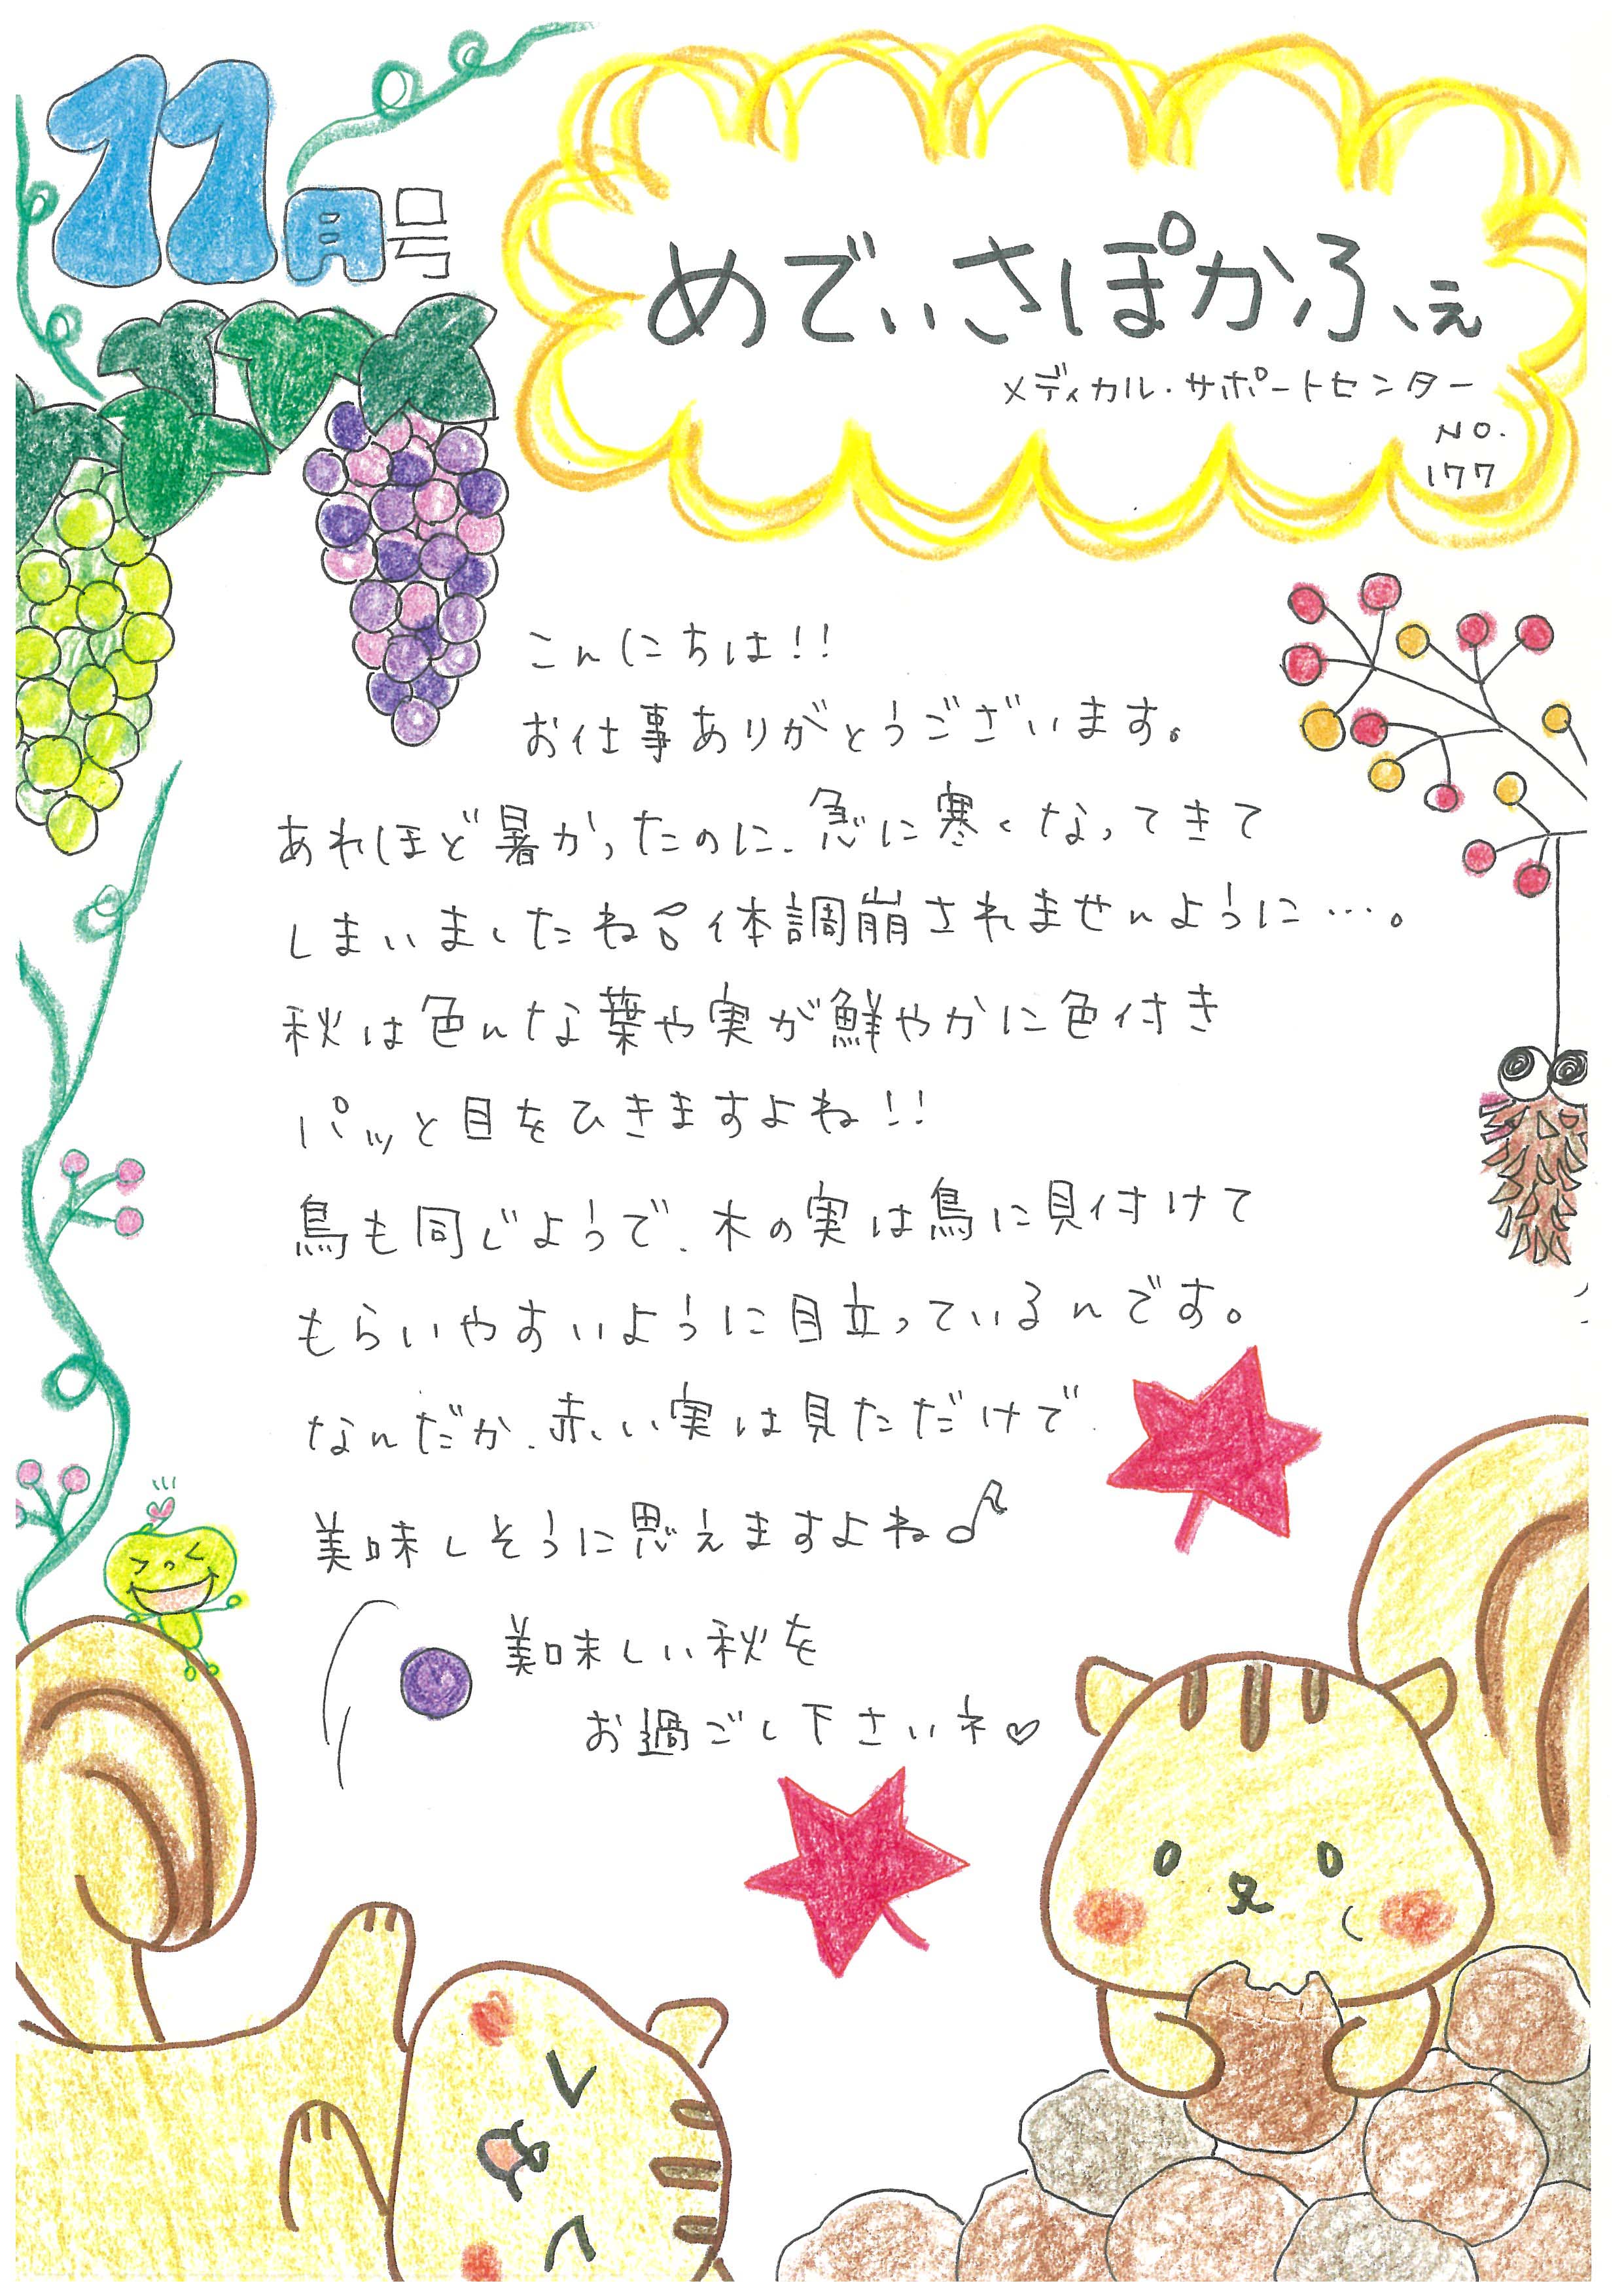 11月号
めでぃさぽかふぇ
メディカル・サポートセンター
NO.
177
こんにちは!!
お仕事ありがとうございます。
あれほど暑かったのに、急に寒くなってきて
しまいましたね 体調崩されませんように…。
秋は色んな葉や実が鮮やかに色付き
パッと目をひきますよね!!
鳥も同じようで、木の実は鳥に見付けて
もらいやすいように目立っているんです。
なんだか、赤い実は見ただけで
美味しそうに思えますよね♪
美味しい秋を
お過ごし下さいネ♡